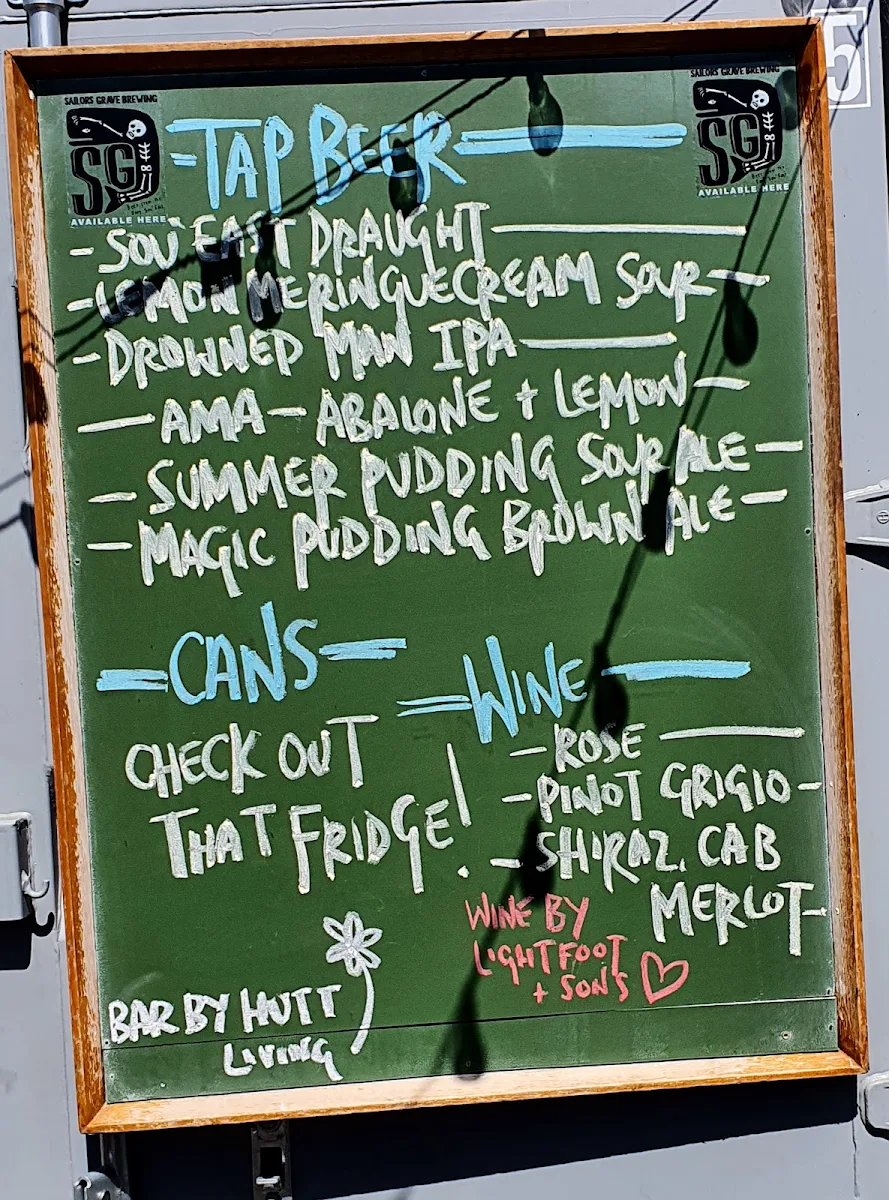 5
SAILORS GRAVE BREWING
SG
AVAILABLE HERE
SAILORS GRAVE BREWING
SG
AVAILABLE HERE
= TAP BEER =
- SOU' EAST DRAUGHT -
- LEMON MERINGUE CREAM SOUR -
- DROWNED MAN IPA -
- AMA - ABALONE + LEMON -
- SUMMER PUDDING SOUR ALE -
- MAGIC PUDDING BROWN ALE -
= CANS =
CHECK OUT
THAT FRIDGE!
= WINE =
- ROSE -
- PINOT GRIGIO -
- SHIRAZ. CAB
MERLOT -
WINE BY
LIGHTFOOT
+ SONS
BAR BY HUTT
LIVING